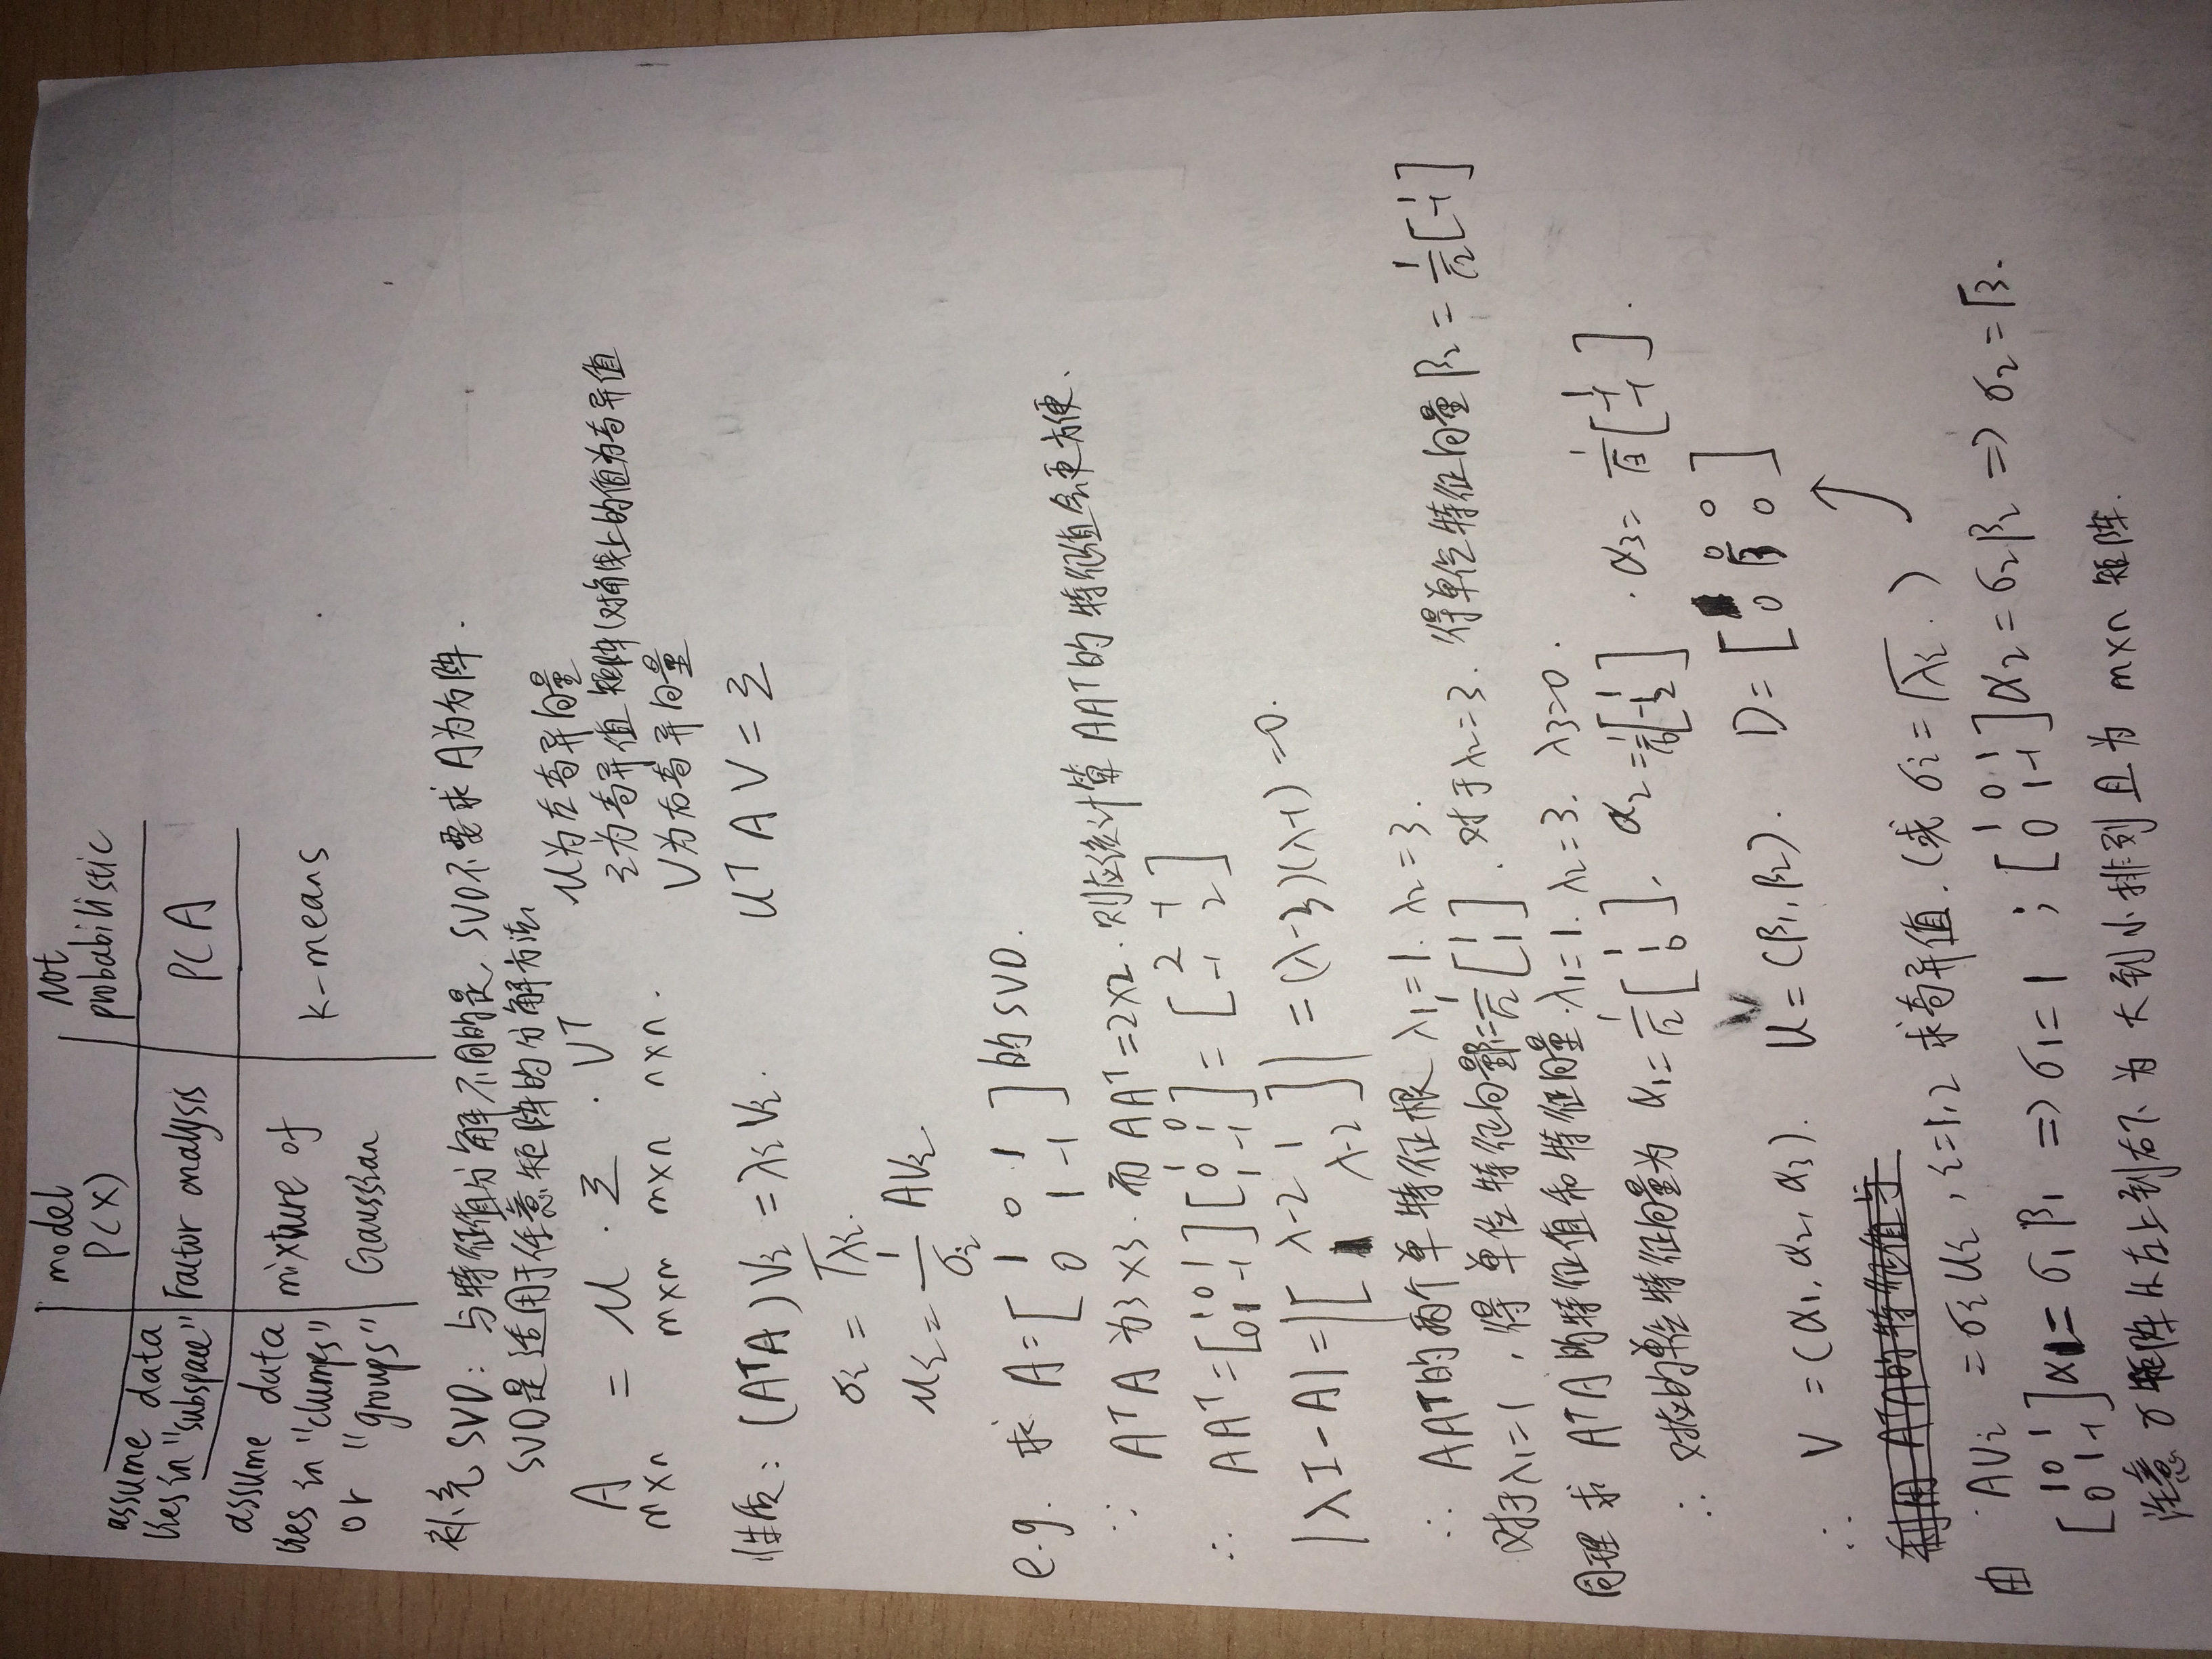 model P(X) | Not probabilistic
assume data lies in "subspace" | Factor analysis | PCA
assume data lies in "clumps" or "groups" | mixture of Gaussian | k-means
补充 SVD: 与特征值分解不同的是, SVD不要求A为方阵.
SVD是适用于任意矩阵的分解方法
A = U · Σ · V^T
m×n m×m m×n n×n.
U为左奇异向量
Σ为奇异值矩阵(对角线上的值为奇异值
V为右奇异向量
性质: (A^T A)V_i = λ_i V_i. U^T A V = Σ
σ_i = √λ_i.
u_i = 1/σ_i AV_i
e.g. 求 A = [1 0 1; 0 1 -1] 的SVD.
∵ A^T A 为3×3. 而 AA^T = 2×2. 则应该计算 AA^T 的特征值会更方便.
∴ AA^T = [1 0 1; 0 1 -1] [1 0; 0 1; 1 -1] = [2 -1; -1 2]
|λI-A| = |[λ-2 1; 1 λ-2]| = (λ-3)(λ-1) = 0.
∴ AA^T的两个单特征根 λ1=1. λ2=3.
对于λ1=1, 得单位特征向量β1=1/√2 [1; 1]. 对于λ2=3. 得单位特征向量β2 = 1/√2 [1; -1]
同理求 A^T A的特征值和特征向量. λ1=1. λ2=3. λ3=0.
∴ 对应的单位特征向量为 α1 = 1/√2 [1; 1; 0]. α2 = 1/√6 [1; -1; 2]. α3 = 1/√3 [1; -1; -1].
∴ V = (α1, α2, α3). U = (β1, β2). D = [0 0; 0 √3 0]
利用 A^T A的特征值与
由 AV_i = σ_i U_i, i=1,2 求奇异值. (或 σ_i = √λ_i.)
[1 0 1; 0 1 -1] α1 = σ1 β1 => σ1 = 1 ; [1 0 1; 0 1 -1] α2 = σ2 β2 => σ2 = √3.
注意 σ 矩阵从左上到右下为大到小排列且为 m×n 矩阵.